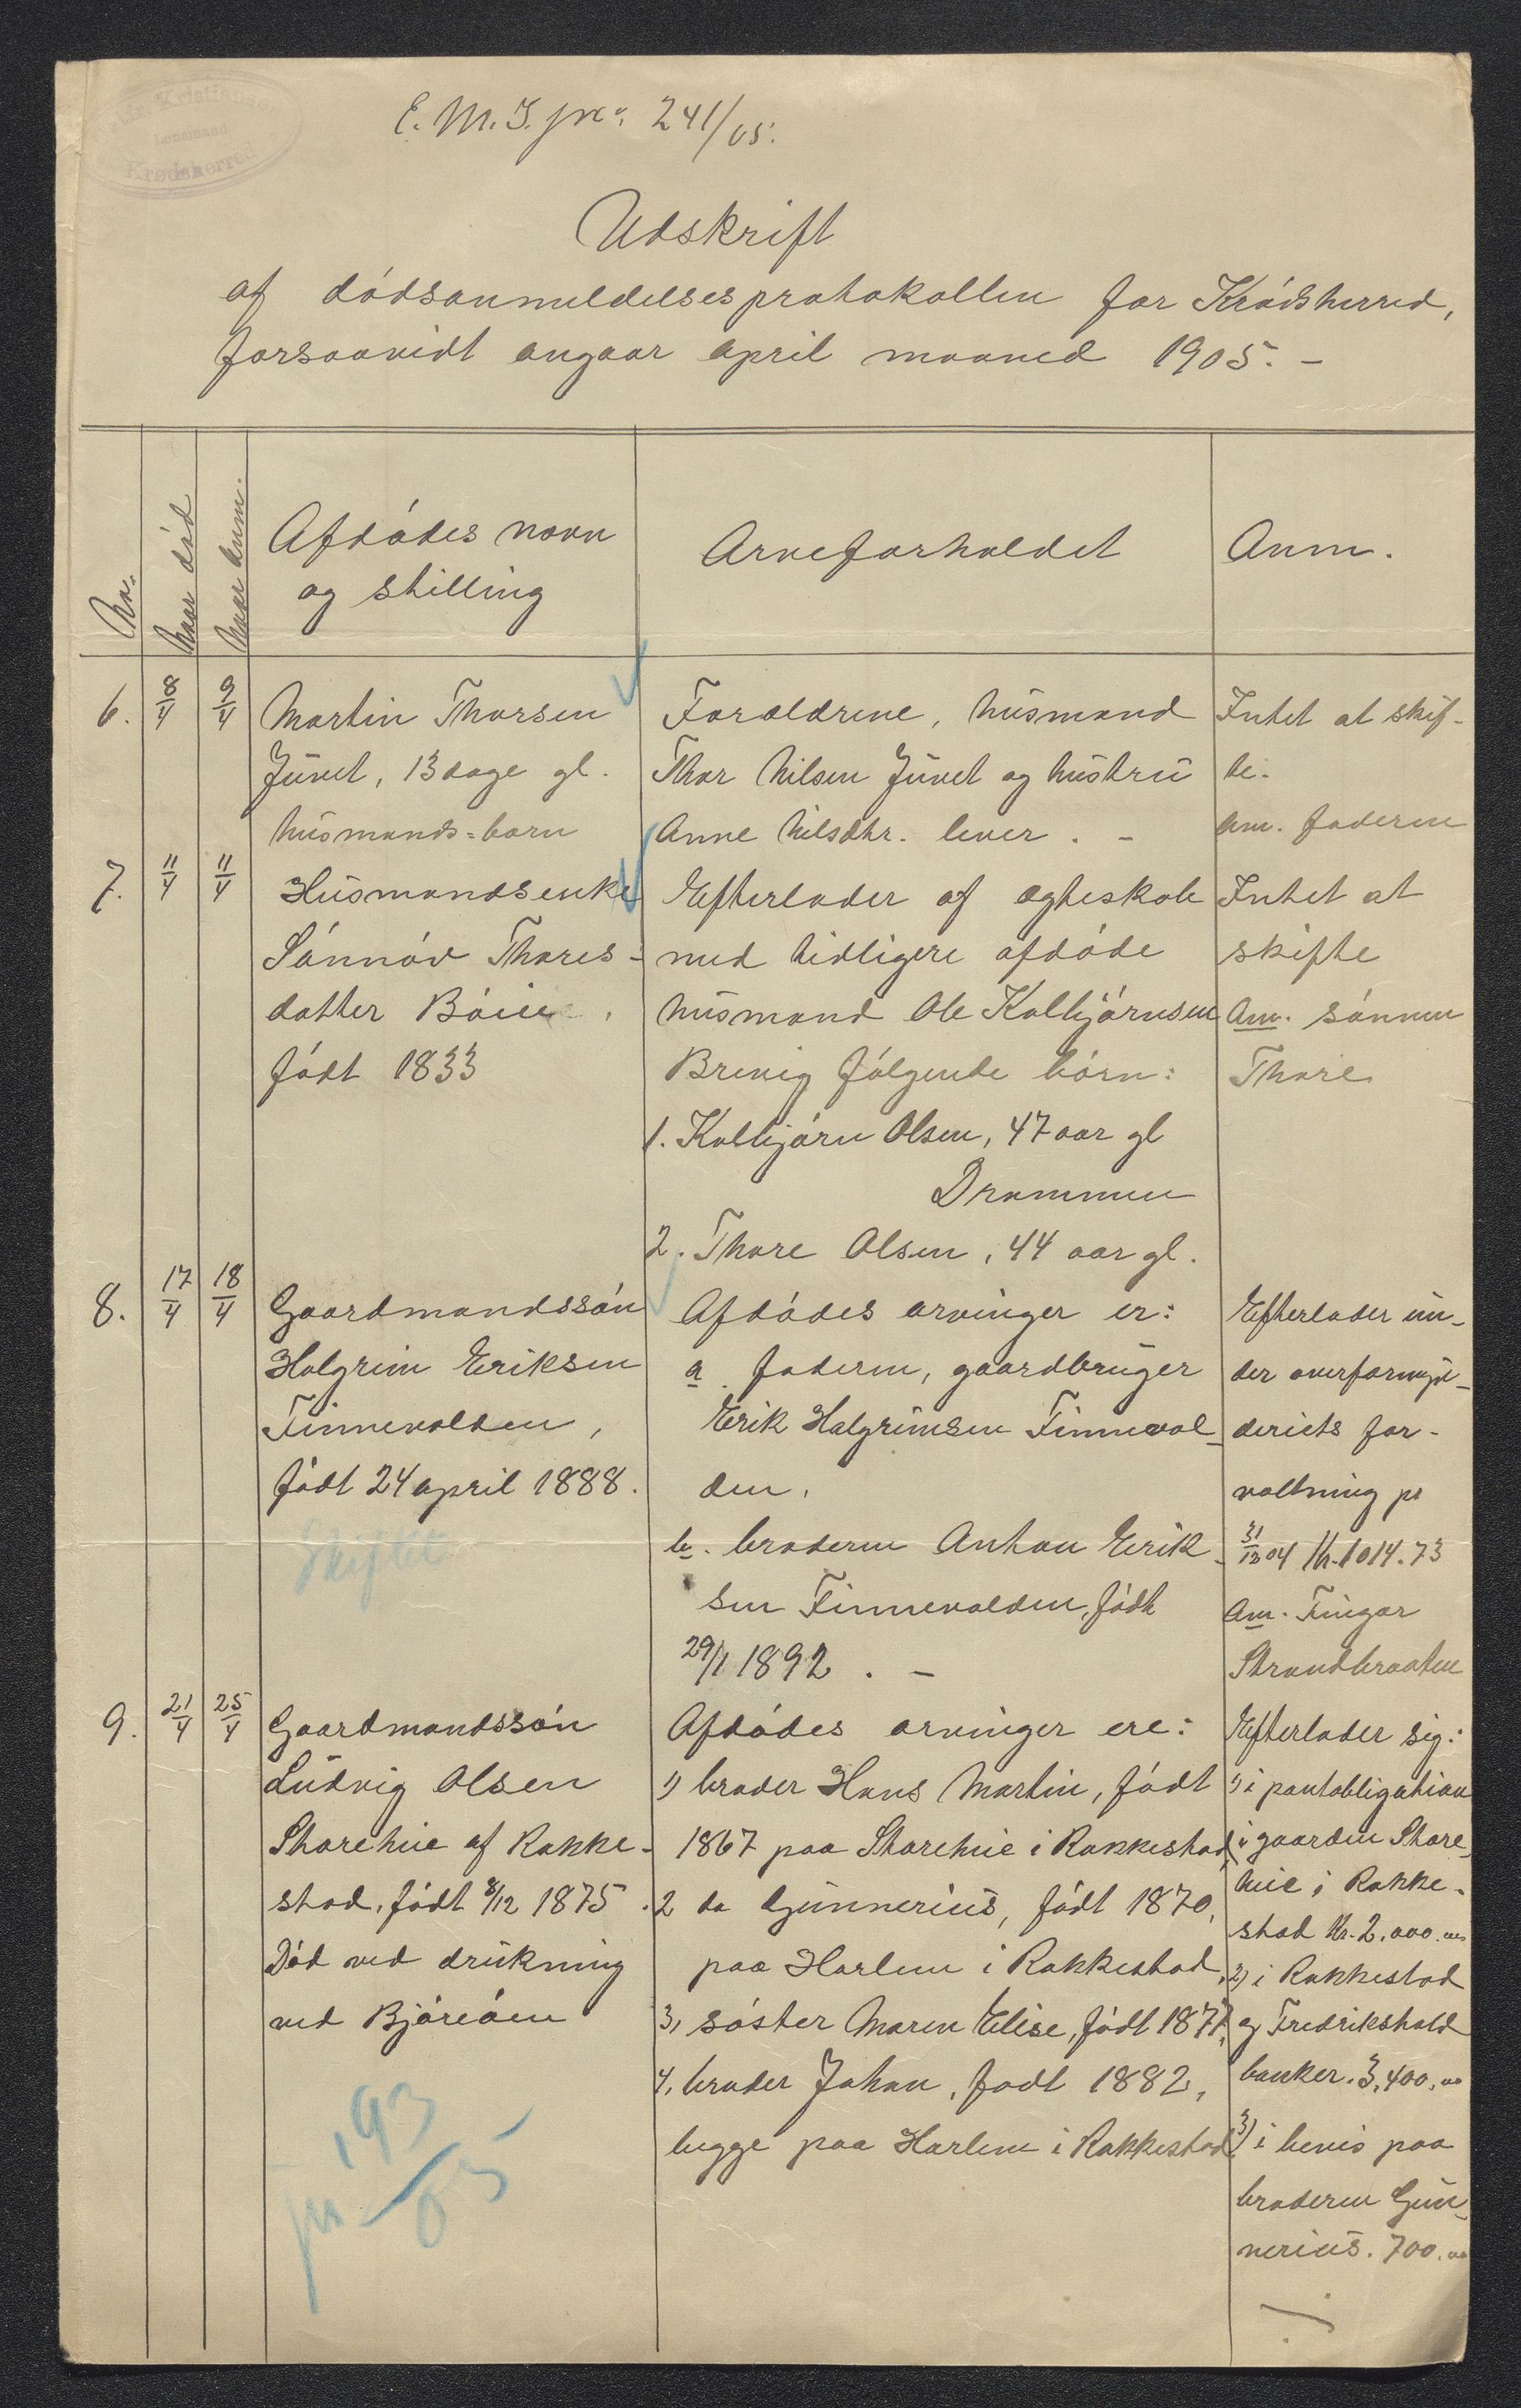 Kristian
Lensmand
Krødsherred
E. M. I. jnr. 241/05.
Udskrift
af dödsanmeldelsesprotokollen for Krödsherred,
forsaavidt angaar april maaned 1905. -
Nr.
Naar död
Naar anm.
Afdödes navn
og stilling
Arveforholdet
Anm.
6.
8/4
9/4
Martin Thorsen
Juvet, 13 dage gl.
husmands=barn
Forældrene, husmand
Thor Nilsen Juvet og hustru
Anne Nilsdtr. lever. -
Intet at skif-
te.
Am. faderen
7.
11/4
11/4
Husmandsenke
Sönnöv Thores-
datter Böiie,
födt 1833
Efterlader af ægteskab
med tidligere afdöde
husmand Ole Kolbjörnsen
Brenig følgende börn:
1. Kolbjörn Olsen, 47 aar gl
Drammen
2. Thore Olsen, 44 aar gl.
Intet at
skifte
Am. sönnen
Thore
8.
17/4
18/4
Gaardmandssön
Halgrim Eriksen
Finnevolden,
födt 24 april 1888.
Skiftet
Afdödes arvinger er:
a. faderen, gaardbruger
Erik Halgrimsen Finnevol-
den.
b. broderen Anton Erik-
sen Finnevolden, födt
29/1 1892. -
Efterlader un-
der overformyn-
deriets for-
valtning pr
31/12 04 Kr. 1014.73
Am. Fingar
Strandbraaten
9.
21/4
25/4
Gaardmandssön
Ludvig Olsen
Storehie af Rakke-
stad, födt 8/12 1875.
Död ved drukning
ved Björeöen
jnr 193/05
Afdödes arvinger ere:
1) broder Hans Martin, födt
1867 paa Storehie i Rakkestad,
2 do Gunnerius, födt 1870,
paa Harlem i Rakkestad,
3, söster Maren Elise, födt 1877,
4, broder Johan, födt 1882,
begge paa Harlem i Rakkestad.
Efterlader sig:
1) i pantobligation
i gaarden Store-
hie i Rakke-
stad Kr. 2.000.00
2) i Rakkestad
og Fredrikshald
banker. 3,400.00
3) i bevis paa
broderen Gun-
nerius. 700.00